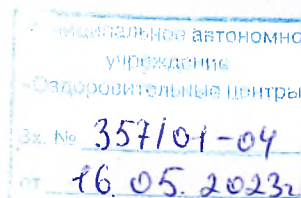 Муниципальное автономно
учреждение
«Оздоровительные центры
Вх. № 357/01-04
от 16.05.2023г